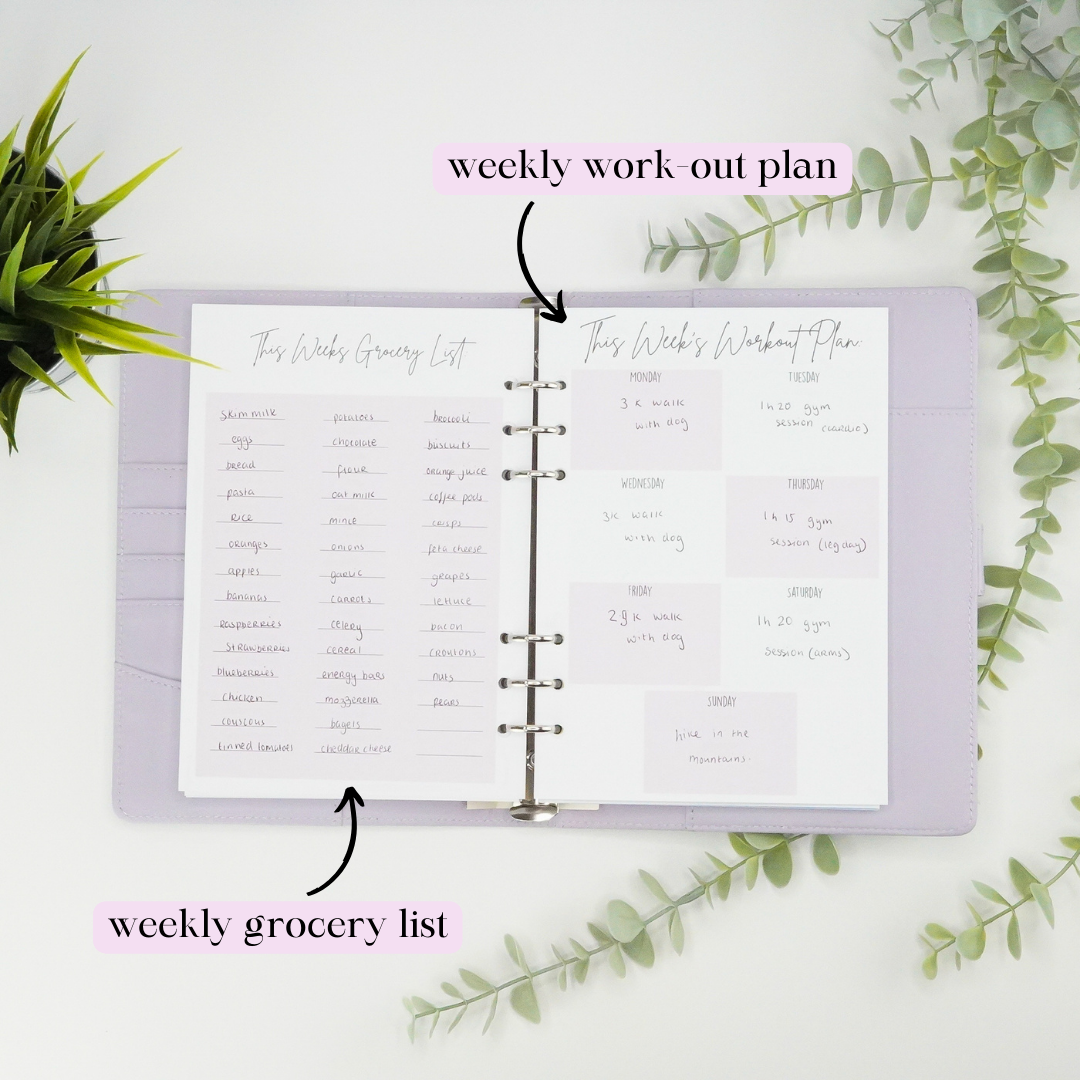 weekly work-out plan
This Weeks Grocery List
skim milk
eggs
bread
pasta
RICE
oranges
apples
bananas
Raspberries
STRAWBERRIES
blueberries
chicken
couscous
tinned tomatoes
potatoes
chocolate
flour
oat milk
mince
onions
garlic
carrots
celery
cereal
energy bars
mozzerella
bagels
cheddar cheese
broccoli
biscuits
orange juice
coffee pods
crisps
feta cheese
grapes
lettuce
bacon
croutons
nuts
pears
This Week's Workout Plan:
MONDAY
3 k walk
with dog
TUESDAY
1h 20 gym
session (cardio)
WEDNESDAY
3k walk
with dog
THURSDAY
1h 15 gym
session (leg day)
FRIDAY
k walk
with dog
SATURDAY
1h 20 gym
session (arms)
SUNDAY
hike in the
mountains.
weekly grocery list